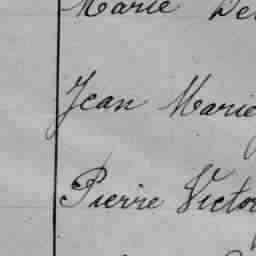 Marie De
Jean Marie
Pierre Victor